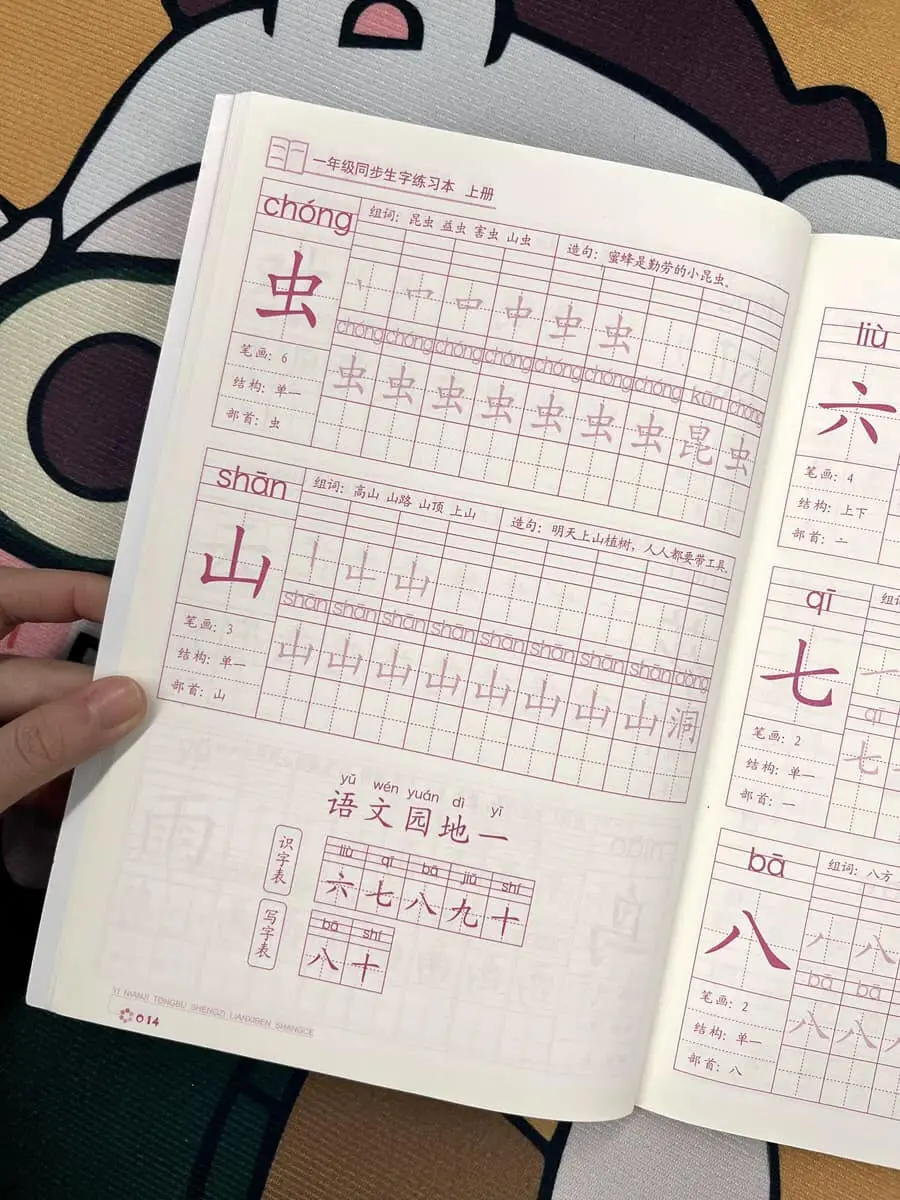 一年级同步生字练习本 上册
chóng
组词：昆虫 益虫 害虫 山虫
造句：蜜蜂是勤劳的小昆虫。
虫
丨 口 口 中 虫 虫
chóng chóng chóng chóng chóng chóng chóng kūn chóng
虫 虫 虫 虫 虫 虫 虫 昆 虫
笔画：6
结构：单一
部首：虫
shān
组词：高山 山路 山顶 上山
造句：明天上山植树，人人都要带工具。
山
丨 山 山
shān shān shān shān shān shān shān shān dòng
山 山 山 山 山 山 山 山 洞
笔画：3
结构：单一
部首：山
yǔ wén yuán dì yī
语文园地一
识字表
liù qī bā jiǔ shí
六 七 八 九 十
写字表
bā shí
八 十
YI NIANJI TONGBU SHENGZI LIANXIBEN SHANGCE
014
liù
六
笔画：4
结构：上下
部首：亠
qī
组
七
一
qī
七 七
笔画：2
结构：单一
部首：一
bā
组词：八方
八
丿 八
bā bā
八 八
笔画：2
结构：单一
部首：八